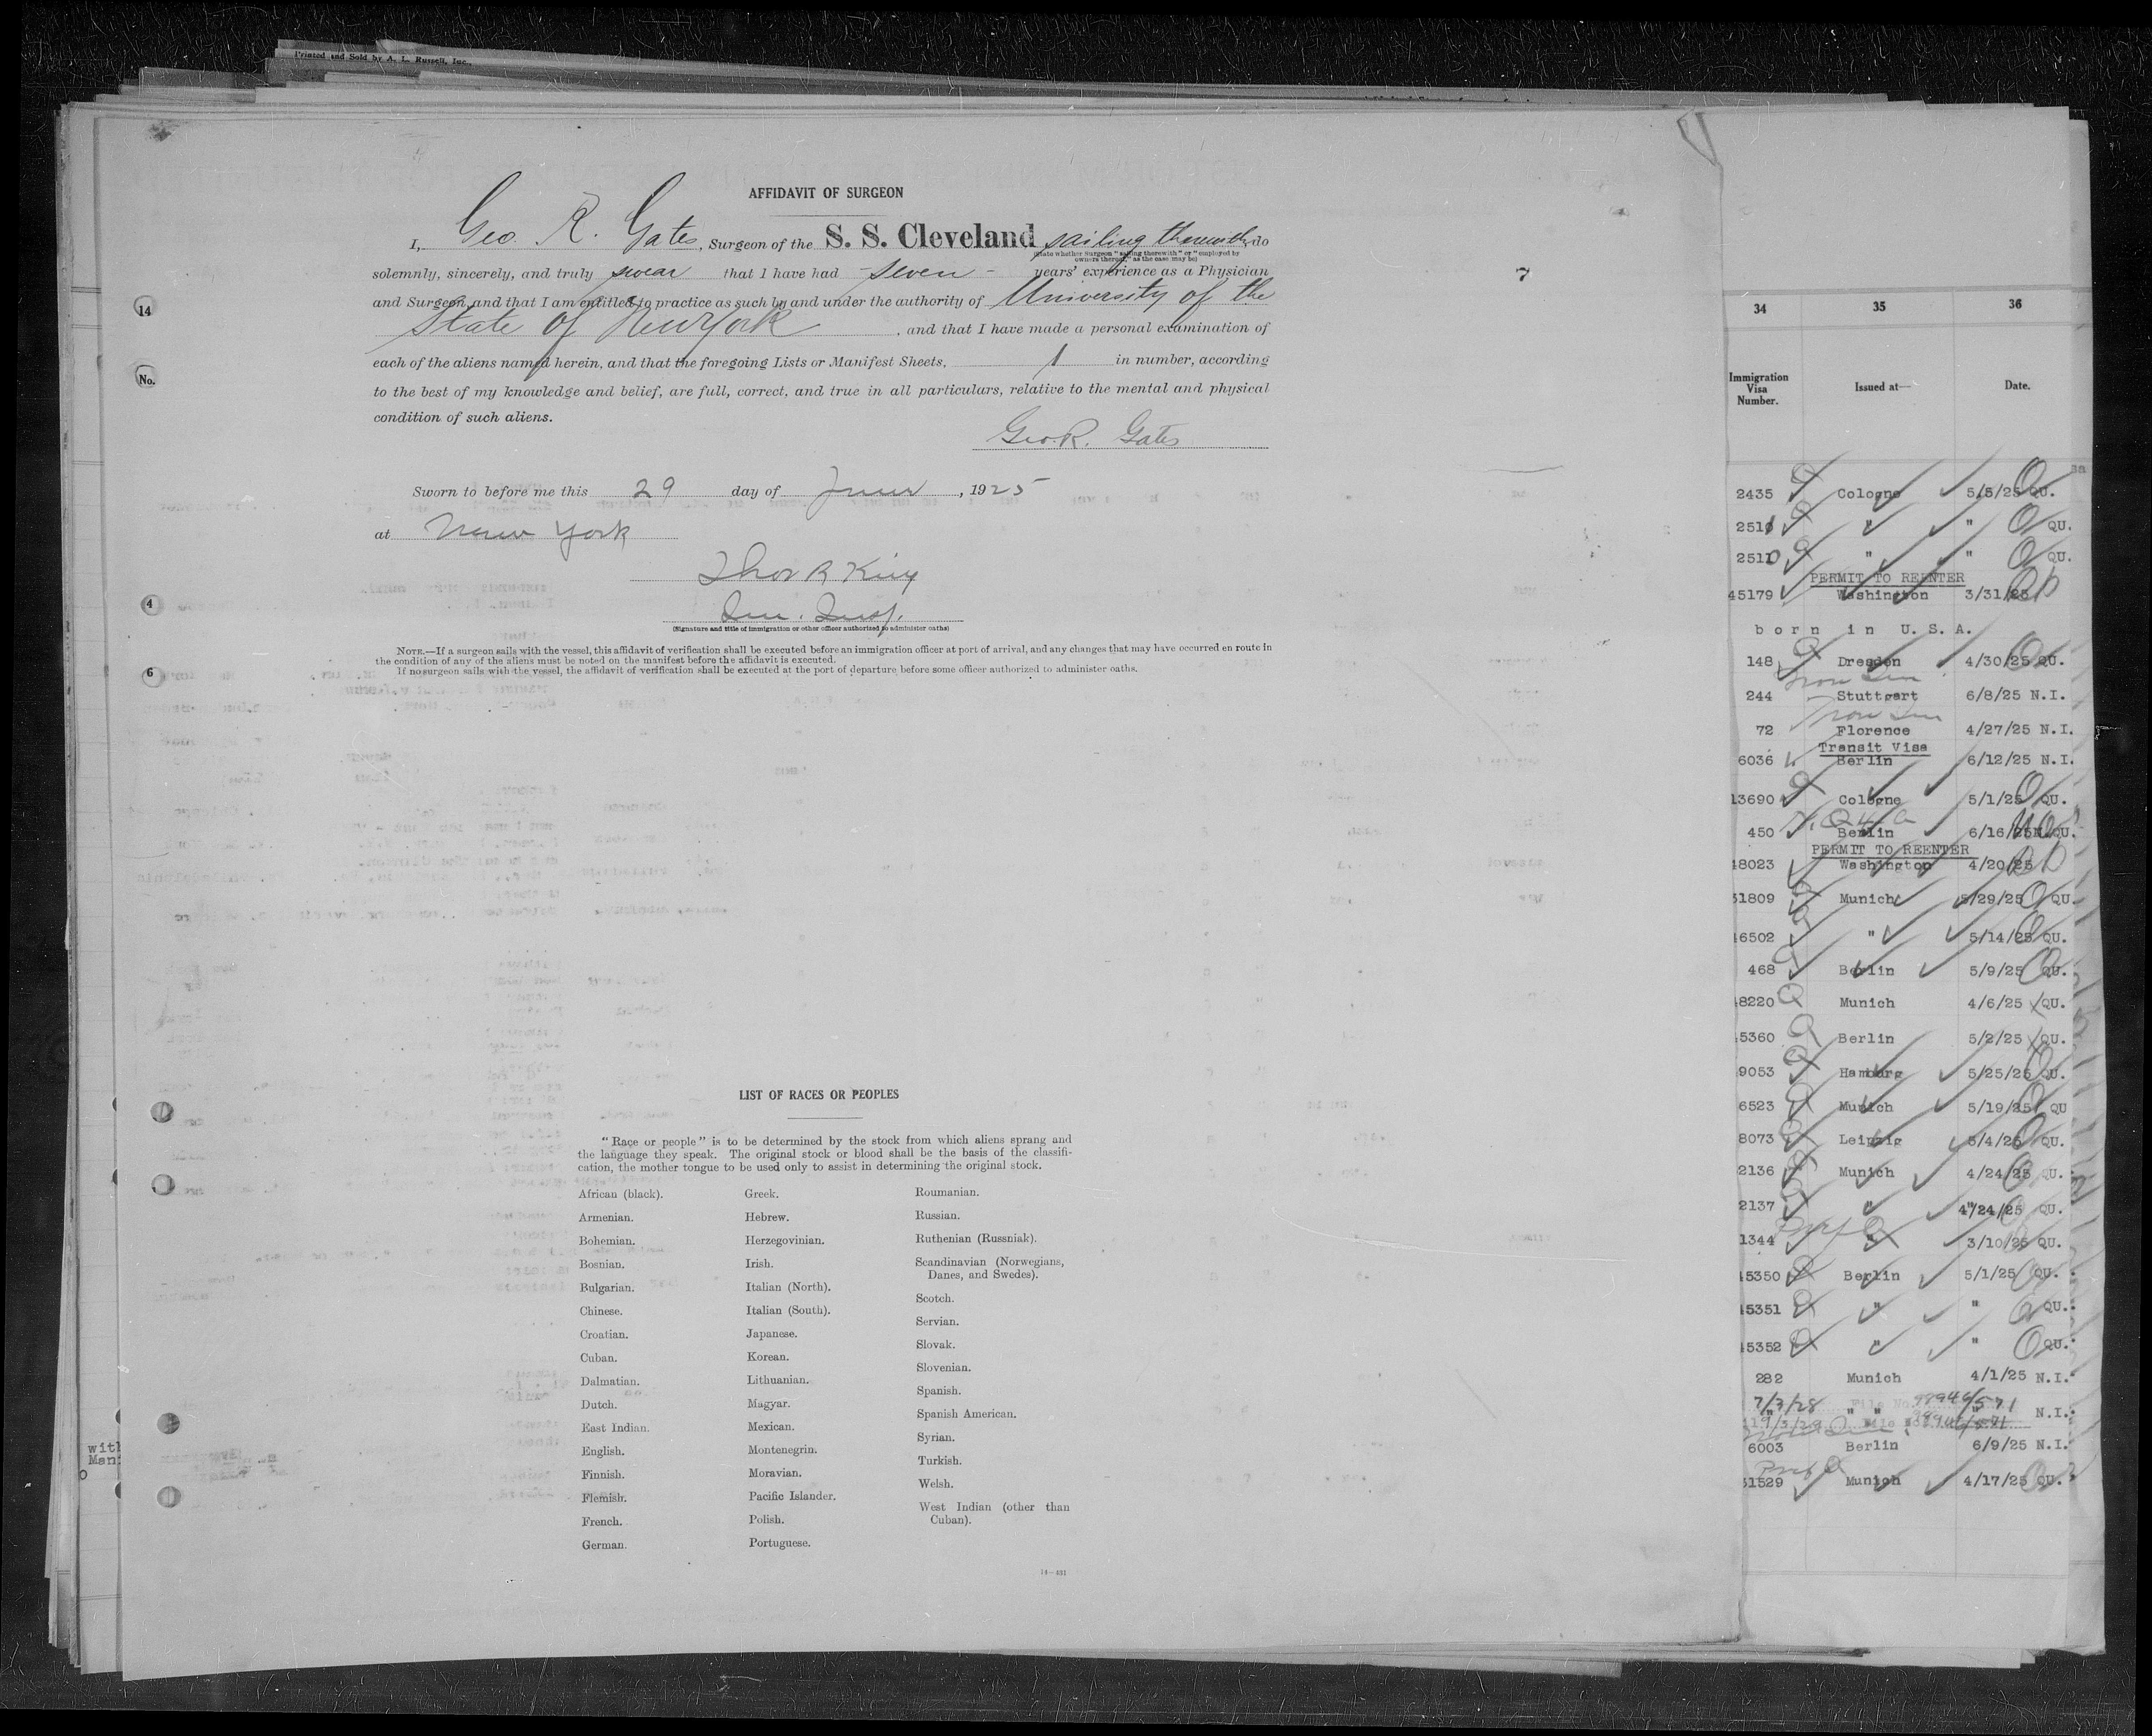 Printed and Sold by A. L. Russell, Inc.,
AFFIDAVIT OF SURGEON
I, Geo. R. Gates, Surgeon of the S. S. Cleveland sailing therewith, do
(State whether Surgeon "sailing therewith" or "employed by
owners thereof," as the case may be)
solemnly, sincerely, and truly swear that I have had -seven- years' experience as a Physician
and Surgeon, and that I am entitled to practice as such by and under the authority of University of the
State of New York, and that I have made a personal examination of
each of the aliens named herein, and that the foregoing Lists or Manifest Sheets, 1 in number, according
to the best of my knowledge and belief, are full, correct, and true in all particulars, relative to the mental and physical
condition of such aliens.
Geo. R. Gates
Sworn to before me this 29 day of June, 1925
at New York
Thos R King
Imm. Insp.
(Signature and title of immigration or other officer authorized to administer oaths)
NOTE.—If a surgeon sails with the vessel, this affidavit of verification shall be executed before an immigration officer at port of arrival, and any changes that may have occurred en route in
the condition of any of the aliens must be noted on the manifest before the affidavit is executed.
If no surgeon sails with the vessel, the affidavit of verification shall be executed at the port of departure before some officer authorized to administer oaths.
7
14
No.
4
6
LIST OF RACES OR PEOPLES
"Race or people" is to be determined by the stock from which aliens sprang and
the language they speak. The original stock or blood shall be the basis of the classifi-
cation, the mother tongue to be used only to assist in determining the original stock.
African (black).
Armenian.
Bohemian.
Bosnian.
Bulgarian.
Chinese.
Croatian.
Cuban.
Dalmatian.
Dutch.
East Indian.
English.
Finnish.
Flemish.
French.
German.
Greek.
Hebrew.
Herzegovinian.
Irish.
Italian (North).
Italian (South).
Japanese.
Korean.
Lithuanian.
Magyar.
Mexican.
Montenegrin.
Moravian.
Pacific Islander.
Polish.
Portuguese.
Roumanian.
Russian.
Ruthenian (Russniak).
Scandinavian (Norwegians,
Danes, and Swedes).
Scotch.
Servian.
Slovak.
Slovenian.
Spanish.
Spanish American.
Syrian.
Turkish.
Welsh.
West Indian (other than
Cuban).
14—401
34 35 36
Immigration
Visa
Number.
Issued at—
Date.
2435 Cologne 5/5/25 QU.
2510 " " QU.
2511 " " QU.
PERMIT TO REENTER
45179 Washington 3/31/25
born in U.S.A.
148 Dresden 4/30/25 QU.
244 Stuttgart 6/8/25 N.I.
72 Florence 4/27/25 N.I.
Transit Visa
6036 Berlin 6/12/25 N.I.
13690 Cologne 5/1/25 QU.
450 Berlin 6/16/25 N.QU.
PERMIT TO REENTER
18023 Washington 4/20/25
31809 Munich 5/29/25 QU.
6502 " 5/14/25 QU.
468 Berlin 5/9/25 QU.
8220 Munich 4/6/25 QU.
5360 Berlin 5/2/25 QU.
9053 Hamburg 5/25/25 QU.
6523 Munich 5/19/25 QU
8073 Leipzig 5/4/25 QU.
2136 Munich 4/24/25 QU.
2137 " 4/24/25 QU.
1344 " 3/10/25 QU.
45350 Berlin 5/1/25 QU.
45351 " " QU.
45352 " " QU.
282 Munich 4/1/25 N.I.
7/3/28 File No. " " N.I.
6003 Berlin 6/9/25 N.I.
31529 Munich 4/17/25 QU.